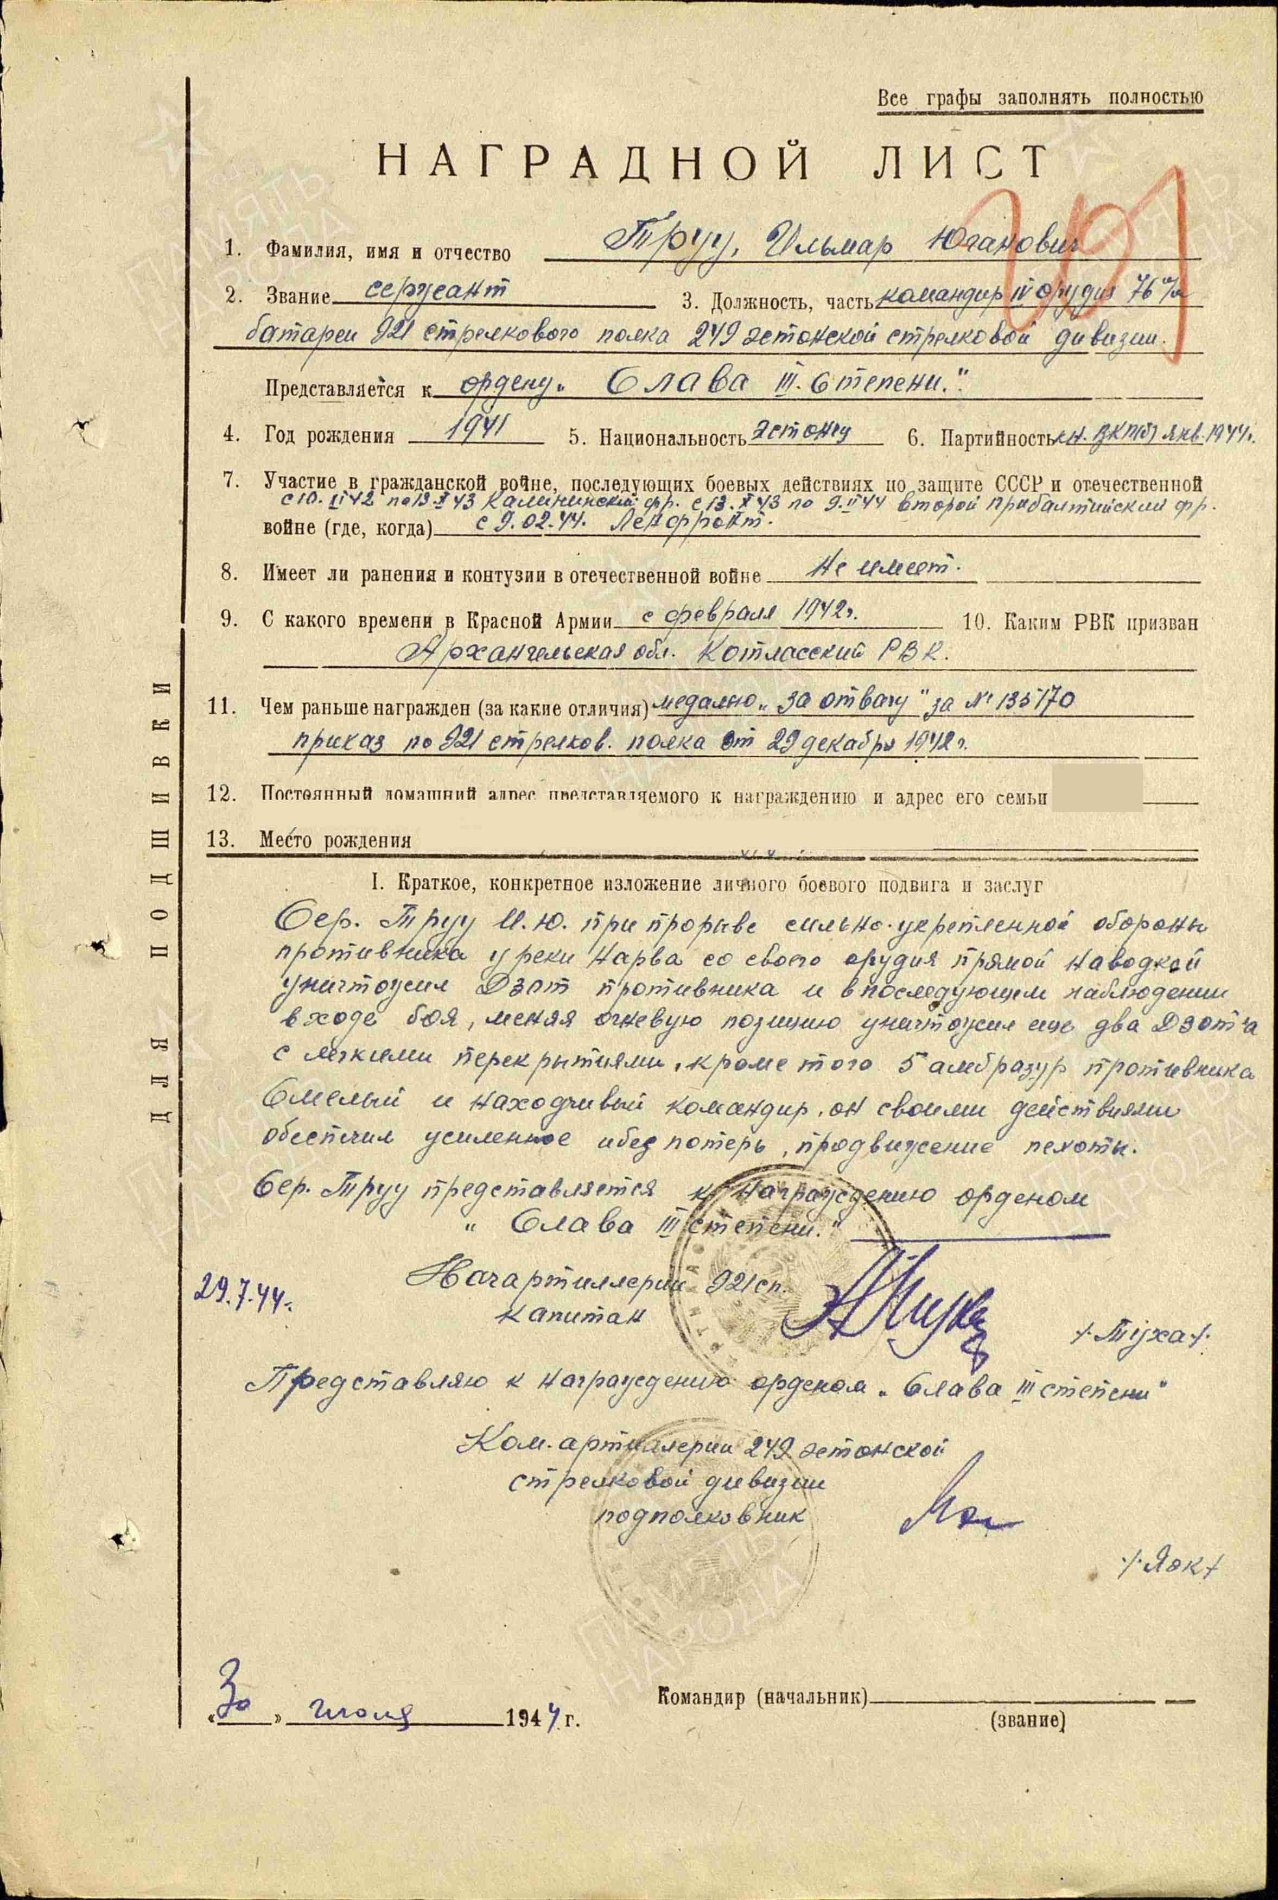 Все графы заполнять полностью
НАГРАДНОЙ ЛИСТ
1. Фамилия, имя и отчество Труу, Ильмар Юганович
2. Звание сержант 3. Должность, часть командир IV орудия 76 м/м
батареи 921 стрелкового полка 249 эстонской стрелковой дивизии.
Представляется к ордену „Слава III. Степени."
4. Год рождения 1941 5. Национальность эстонец 6. Партийность кн. ВКП(б) янв. 1944г.
7. Участие в гражданской войне, последующих боевых действиях по защите СССР и отечественной
с 10. II 42 по 13 X 43 Калининский фр. с 13. X 43 по 9. II 44 второй прибалтийский фр.
войне (где, когда) с 9.02.44. Ленфронт.
8. Имеет ли ранения и контузии в отечественной войне Не имеет.
9. С какого времени в Красной Армии с февраля 1942г. 10. Каким РВК призван
Архангельская обл. Котласский РВК.
11. Чем раньше награжден (за какие отличия) медалью „за отвагу" за № 135170
приказ по 921 стрелков. полка от 29 декабря 1942г.
12. Постоянный домашний адрес представляемого к награждению и адрес его семьи
13. Место рождения
I. Краткое, конкретное изложение личного боевого подвига и заслуг
Сер. Труу И.Ю. при прорыве сильно-укрепленной обороны
противника у реки Нарва со своего орудия прямой наводкой
уничтожил Дзот противника и в последующем наблюдении
в ходе боя, меняя огневую позицию уничтожил еще два Дзот'а
с легкими перекрытиями, кроме того 5 амбразур противника
Смелый и находчивый командир, он своими действиями
обеспечил усиленное и без потерь, продвижение пехоты.
Сер. Труу представляется к награждению орденом
„Слава III степени."
29.7.44г.
Начартиллерии 921 сп.
капитан
/. Туха ./.
Представляю к награждению орденом „Слава III степени"
Ком. артиллерии 249 эстонской
стрелковой дивизии
подполковник
./. Яок /
Командир (начальник)
« 30 » июля 1944 г.
(звание)
ДЛЯ ПОДШИВКИ
ПАМЯТЬ
НАРОДА